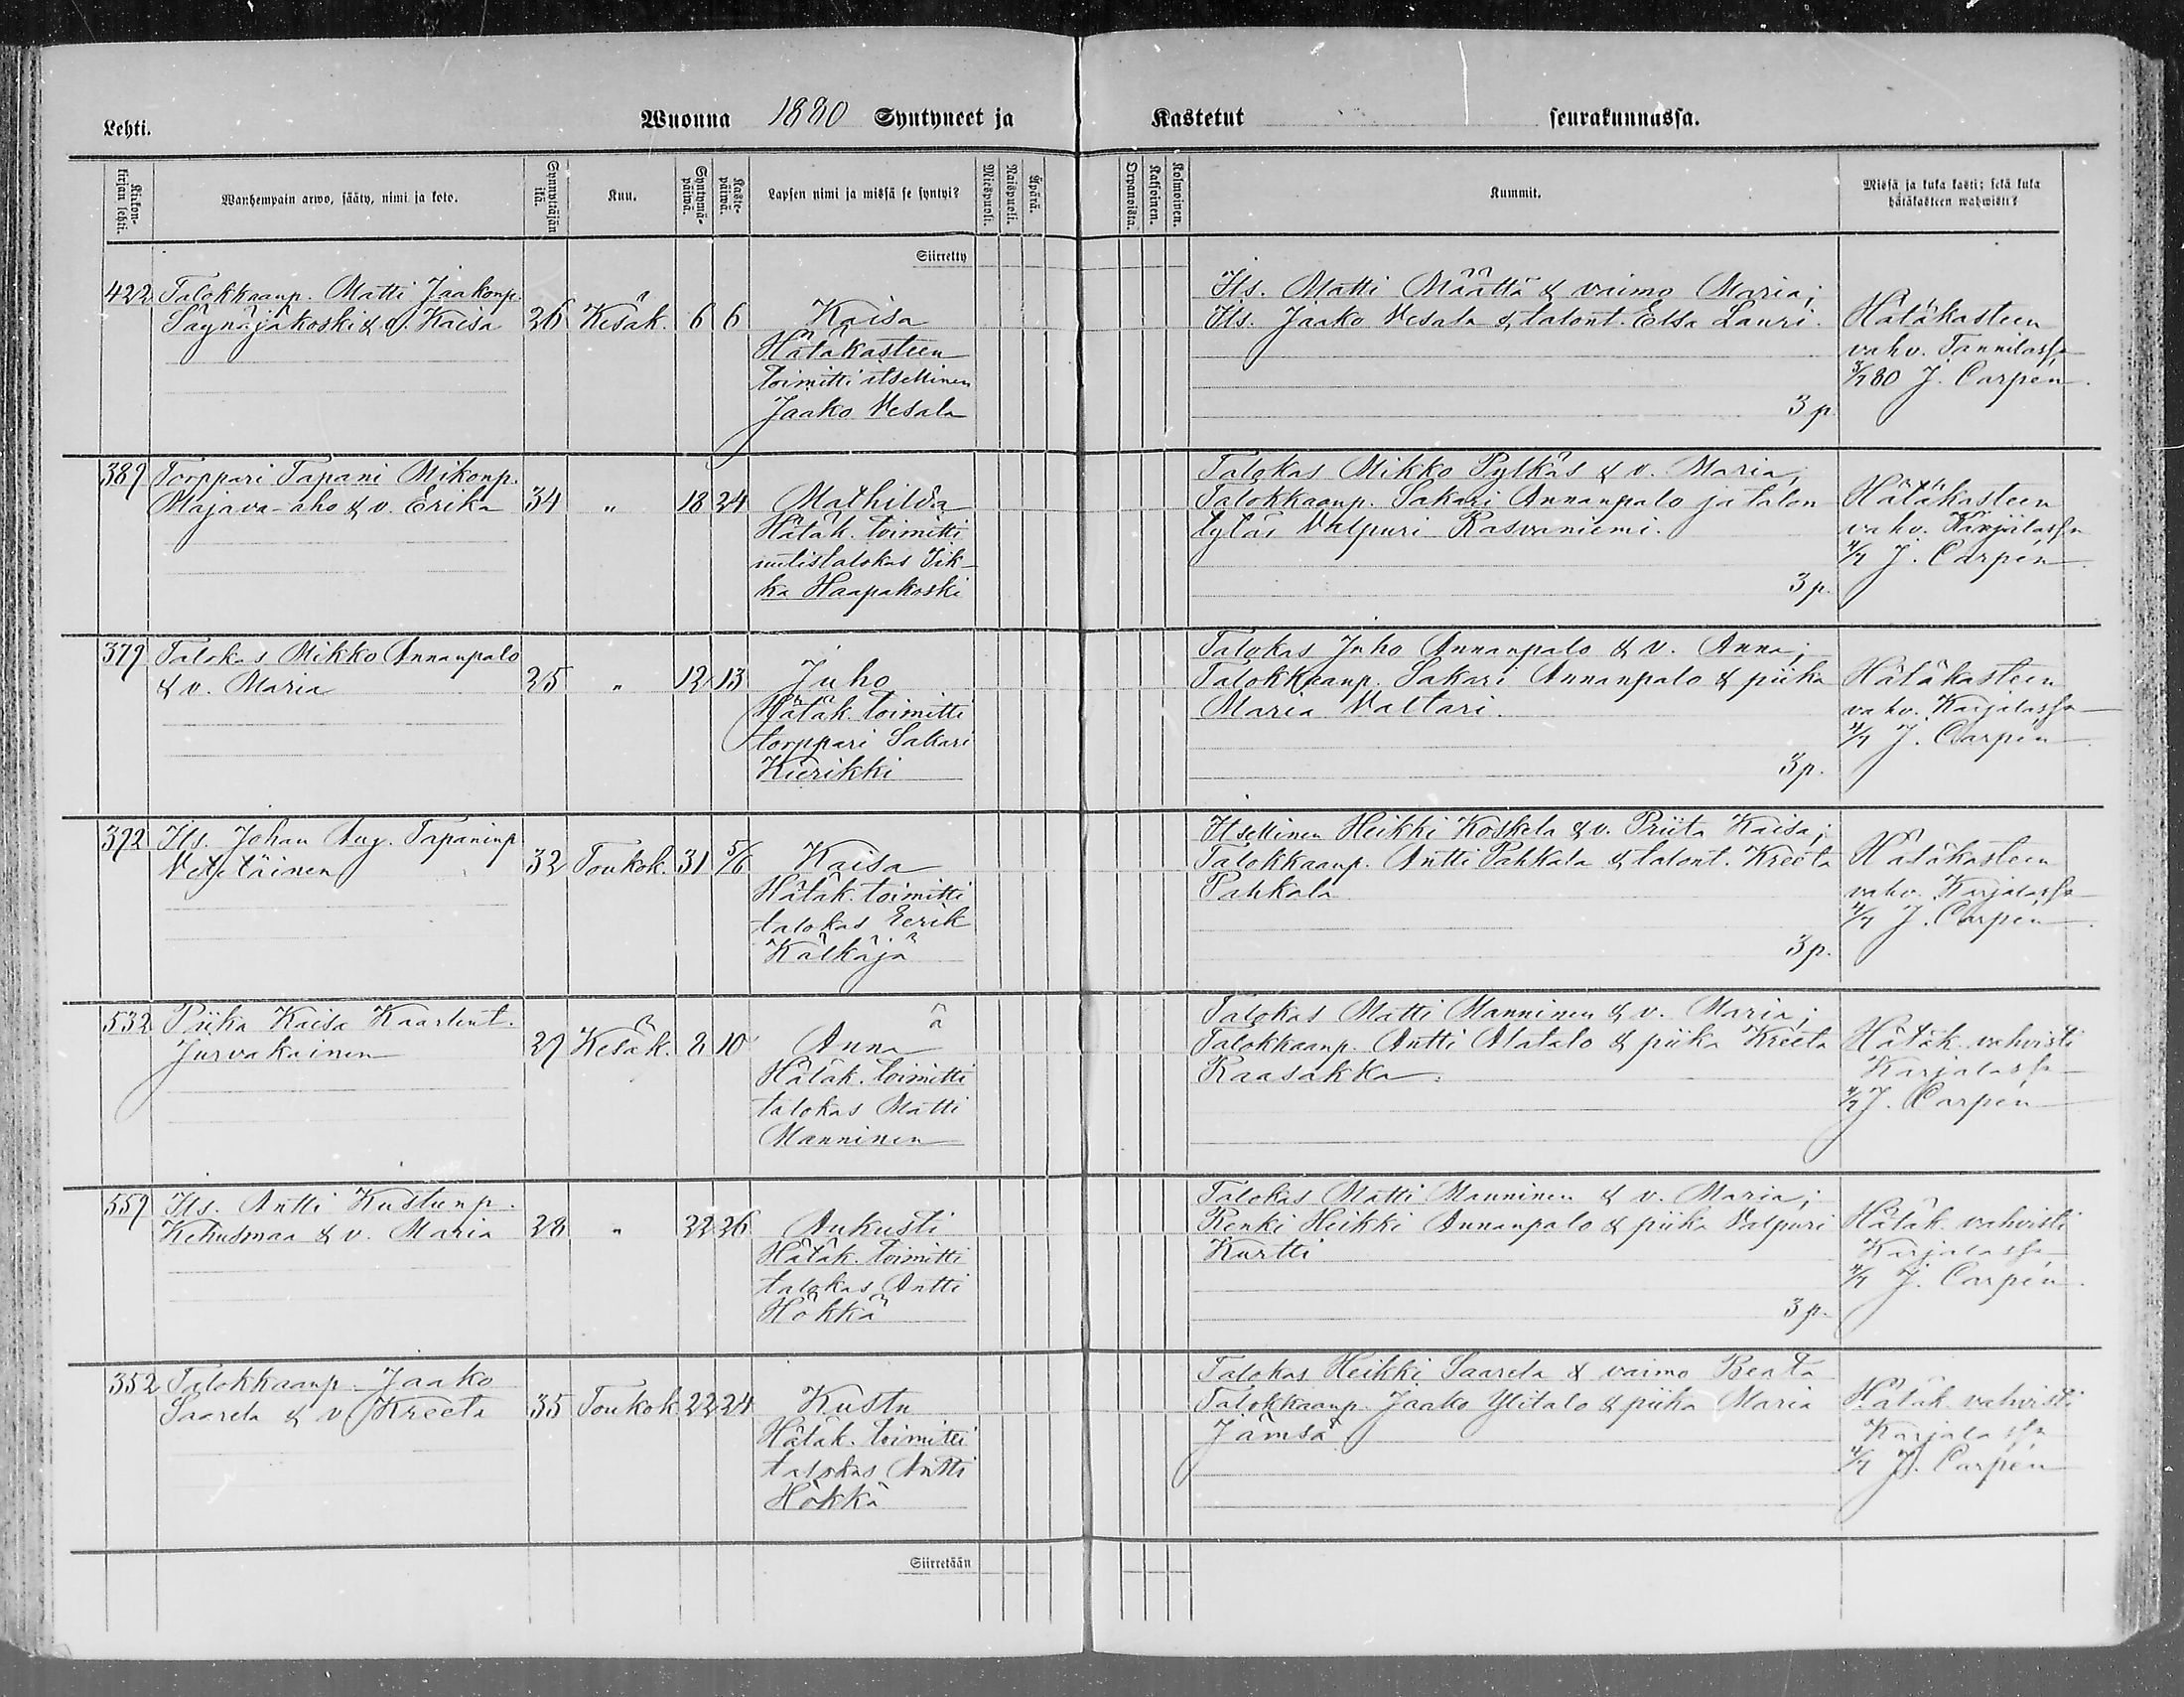 Lehti.
Wuonna 1880 Syntyneet ja Kastetut seurakunnassa.
Kirkon-kirjan lehti.
Wanhempain arwo, sääty, nimi ja koto.
Synnyttäjän ikä.
Kuu.
Syntymä-päiwä.
Kaste-päiwä.
Lapsen nimi ja missä se syntyi?
Miespuoli.
Naispuoli.
Äpärä.
Orpanoista.
Kaksoinen.
Kolmoinen.
Kummit.
Missä ja kuka kasti; sekä kuka hätäkasteen wahwisti?
Siirretty
422 Talokkaanp. Matti Jaakonp.
Säynäjäkoski & v. Kaisa 26 Kesäk. 6 6 Kaisa
Hätäkasteen
toimitti itsellinen
Jaako Vesala
Its. Matti Määttä & vaimo Maria;
Its. Jaako Vesala & talont. Elsa Lauri.
3 p.
Hätäkasteen
vahv. Tannilassa
3/7 80 J. Carpén
389 Torppari Tapani Mikonp.
Majava-aho & v. Erika 34 " 18 24 Mathilda
Hätäk. toimitti
uutistalokas Iik-
ka Haapakoski
Talokas Mikko Pylkäs & v. Maria;
Talokkaanp. Sakari Annanpalo ja talon
tytär Valpuri Rasvaniemi.
3 p.
Hätäkasteen
vahv. Karjalassa
4/7 J. Carpén
379 Talokas Mikko Annanpalo
& v. Maria 25 " 12 13 Juho
Hätäk. toimitti
torppari Sakari
Kierikki
Talokas Juho Annanpalo & v. Anna;
Talokkaanp. Sakari Annanpalo & piika
Maria Valtari.
3 p.
Hätäkasteen
vahv. Karjalassa
4/7 J. Carpén
392 Its. Johan Aug. Tapaninp
32 Toukok. 31 5/6 Kaisa
Hätäk. toimitti
talokas Eerik
Kälkäjä
Itsellinen Heikki Koskela & v. Priita Kaisa;
Talokkaanp. Antti Pahkala & talont. Kreeta
Pahkala
3 p.
Hätäkasteen
vahv. Karjalassa
4/7 J. Carpén
532 Piika Kaisa Kaarlent.
Jurvakainen 29 Kesäk. 8 10 Anna
Hätäk. toimitti
talokas Matti
Manninen
Talokas Matti Manninen & v. Maria;
Talokkaanp. Antti Alatalo & piika Kreeta
Raasakka.
Hätäk. vahvisti
Karjalassa
4/7 J. Carpén
559 Its. Antti Kustunp.
Kehusmaa & v. Maria 28 " 22 26 Aukusti
Hätäk. toimitti
talokas Antti
Hökkä
Talokas Matti Manninen & v. Maria;
Renki Heikki Annanpalo & piika Valpuri
Kurtti
3 p.
Hätäk. vahvisti
Karjalassa
4/7 J. Carpén
352 Talokkaanp. Jaako
Saarela & v. Kreeta 35 Toukok. 22 24 Kustu
Hätäk. toimitti
talokas Antti
Hökkä
Talokas Heikki Saarela & vaimo Beata
Talokkaanp. Jaako Ylitalo & piika Maria
Jämsä
Hätäk. vahvisti
Karjalassa
4/7 J. Carpén
Siirretään